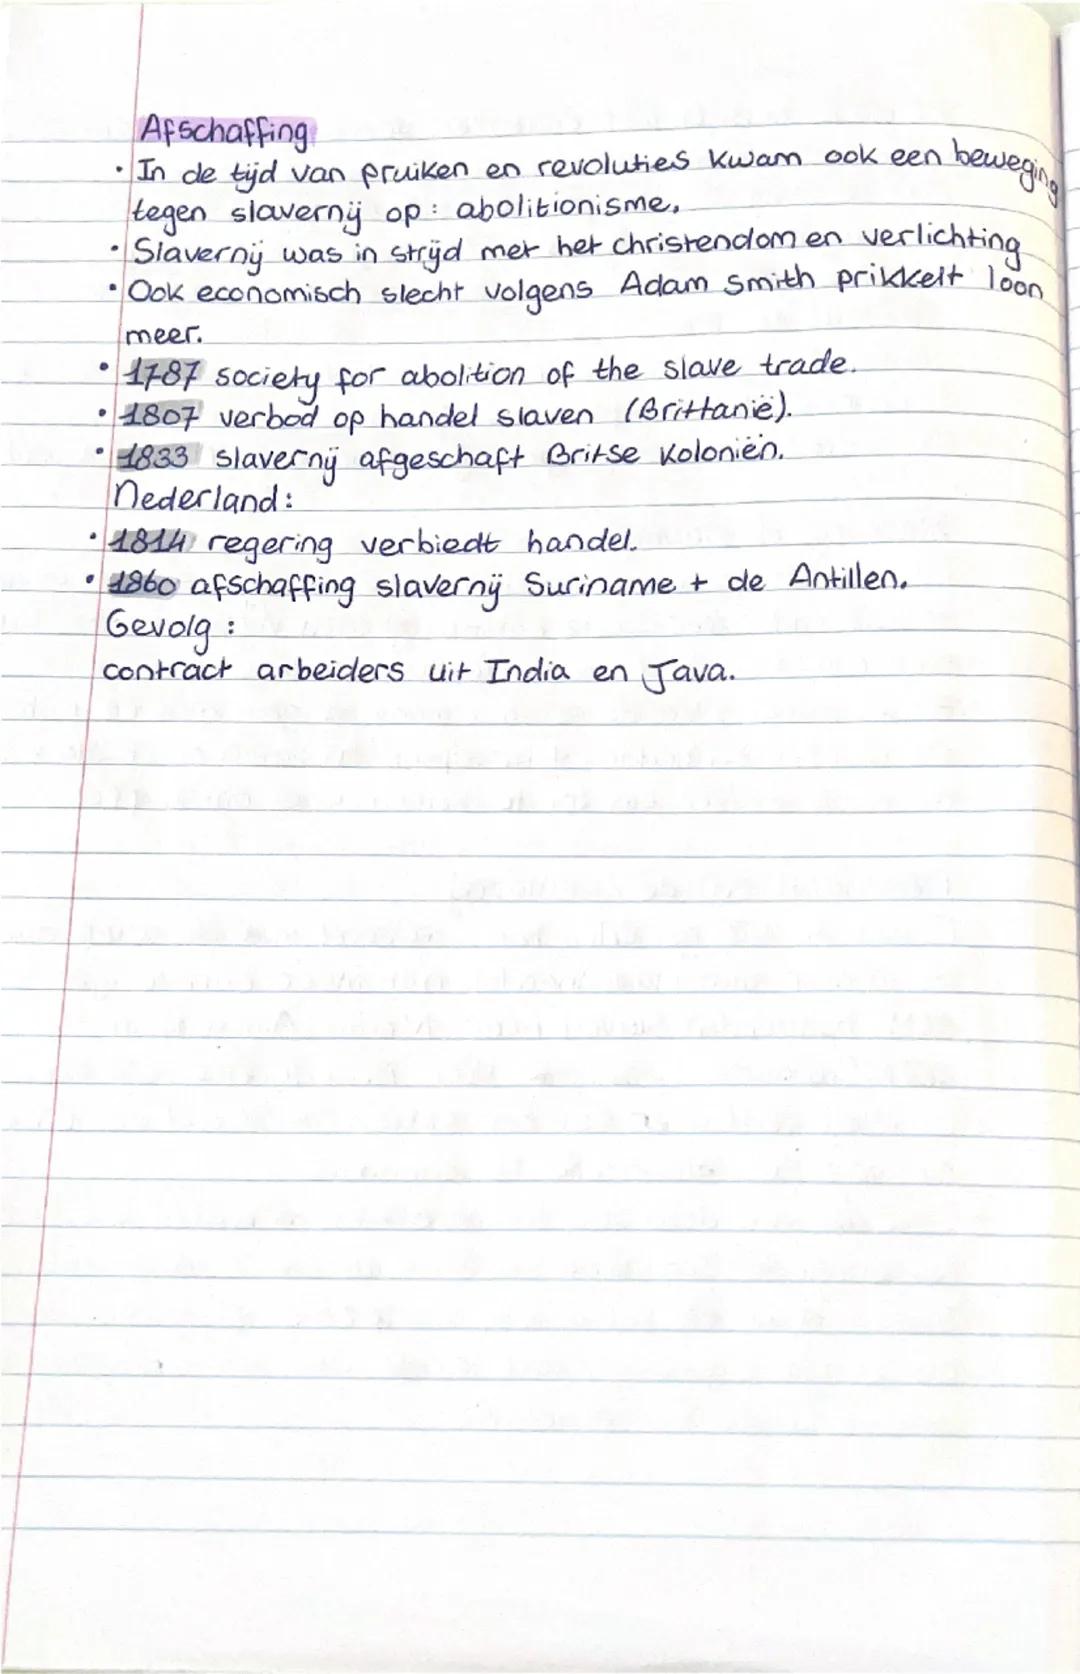 Afschaffing
• In de tijd van pruiken en revoluties kwam ook een beweging
tegen slavernij op: abolitionisme.
• Slavernij was in strijd met het christendom en verlichting
• Ook economisch slecht volgens Adam Smith prikkelt loon
meer.
• 1787 society for abolition of the slave trade.
• 1807 verbod op handel slaven (Brittanië).
• 1833 slavernij afgeschaft Britse Koloniën.
Nederland:
• 1814 regering verbiedt handel.
• 1860 afschaffing slavernij Suriname + de Antillen.
Gevolg:
contract arbeiders uit India en Java.